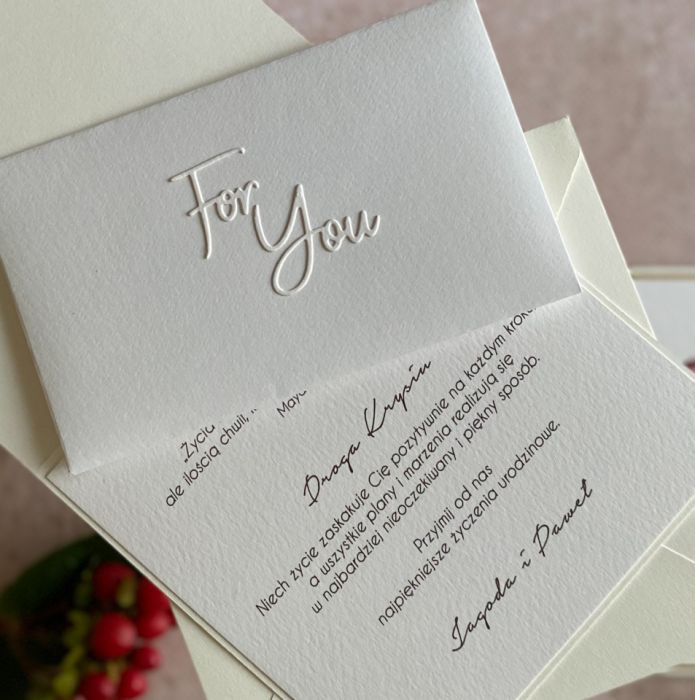 For
You
„Życia
ale ilością chwil,
Maya
Droga Krysiu
Niech życie zaskakuje Cię pozytywnie na każdym kroku
a wszystkie plany i marzenia realizują się
w najbardziej nieoczekiwany i piękny sposób.
Przyjmij od nas
najpiękniejsze życzenia urodzinowe.
Jagoda i Paweł